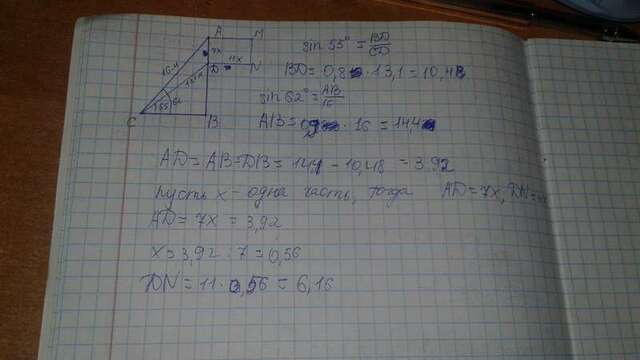 A M
7x
16м
13,1м
D 11x N
55 62
C B
sin 55° = BD/CD
BD = 0,8 · 13,1 = 10,48
sin 62° = AB/16
AB = 0,9 · 16 = 14,4
AD = AB = DB = 14,4 - 10,48 = 3.92
Пусть x - одна часть, тогда AD = 7x, DN =
AD = 7x = 3,92
x = 3,92 : 7 = 0,56
DN = 11 · 0,56 = 6,16